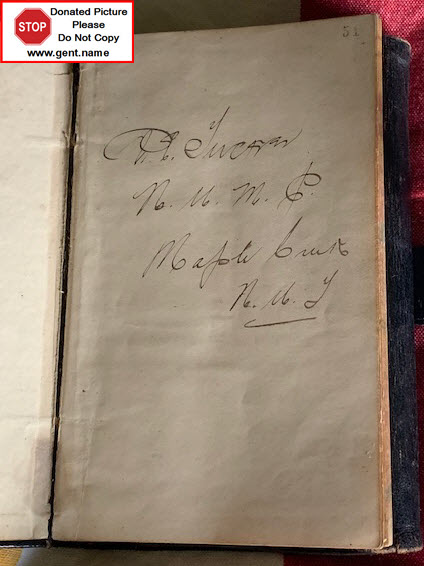 STOP
Donated Picture
Please
Do Not Copy
www.gent.name
51
Tucker
N. W. M. P.
Maple Creek
N. W. T